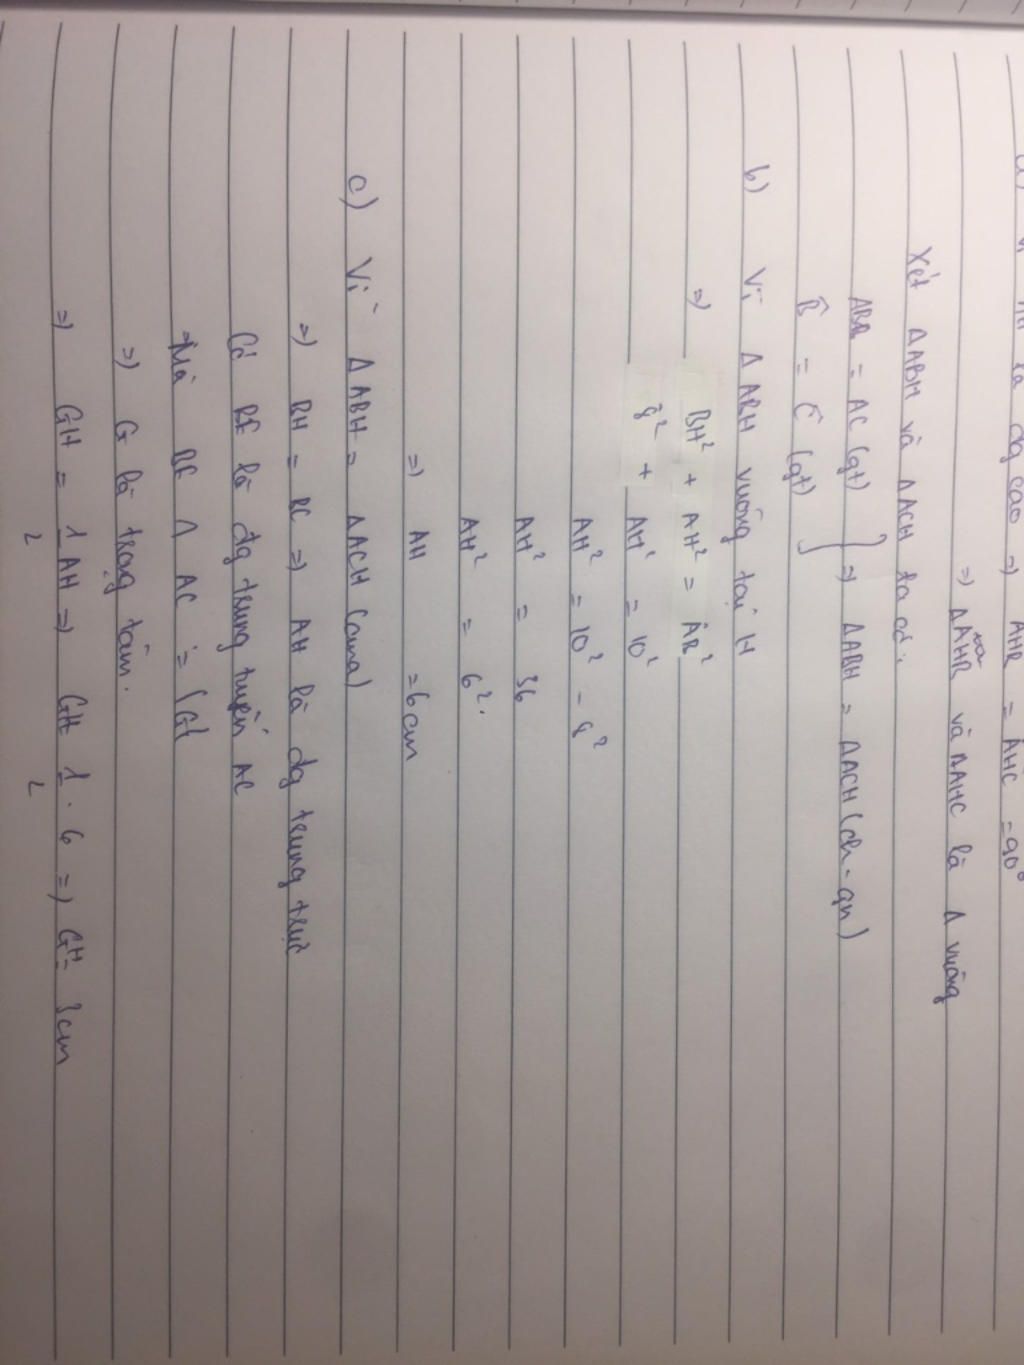 là đg cao => AHB = AHC = 90°
=> ΔAHB và ΔAHC là Δ vuông
Xét ΔABH và ΔACH ta có:
AB = AC (gt)
B̂ = Ĉ (gt) } => ΔABH = ΔACH (ch - gn)
b) Vì ΔABH vuông tại H
=> BH² + AH² = AB²
8² + AH² = 10²
AH² = 10² - 8²
AH² = 36
AH² = 6².
=> AH = 6cm
c) Vì ΔABH = ΔACH (cma)
=> BH = BC => AH là đg trung trực
Có BE là đg trung tuyến AC
Mà BE ∩ AC =
=> G là trọng tâm.
=> GH = 1/2 AH => GH 1/2 . 6 => GH = 3cm